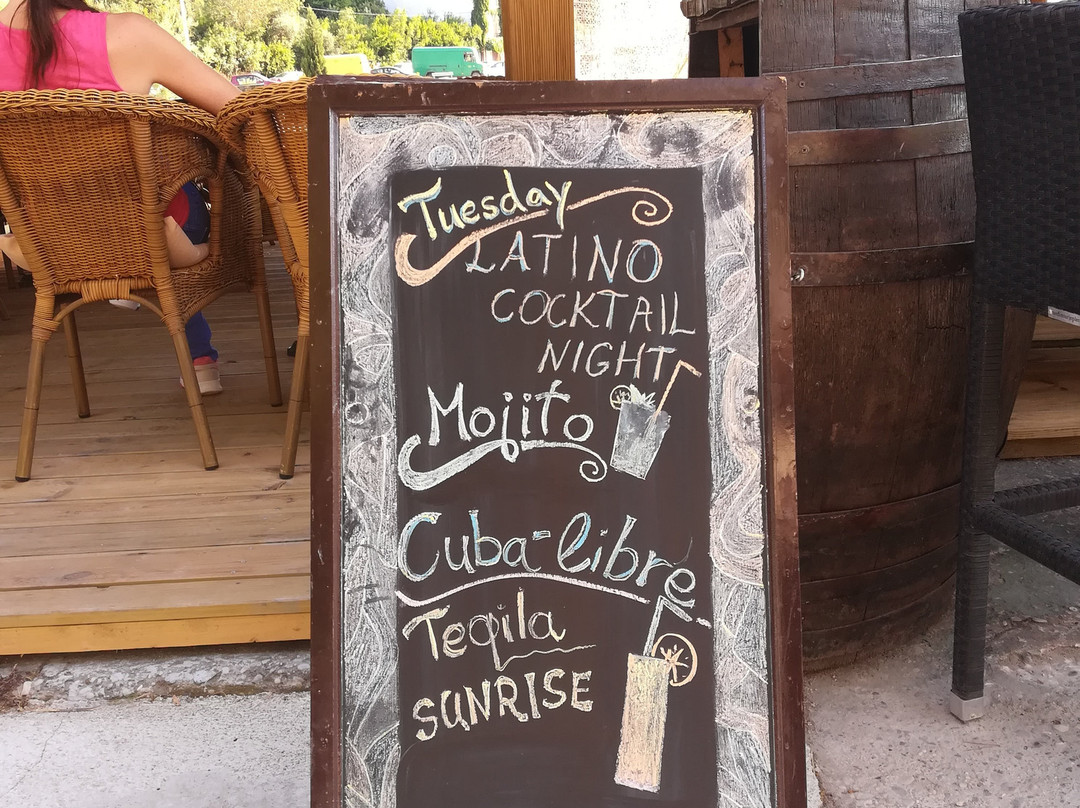 Tuesday
LATINO
COCKTAIL
NIGHT
Mojito
Cuba-libre
Teqila
SUNRISE